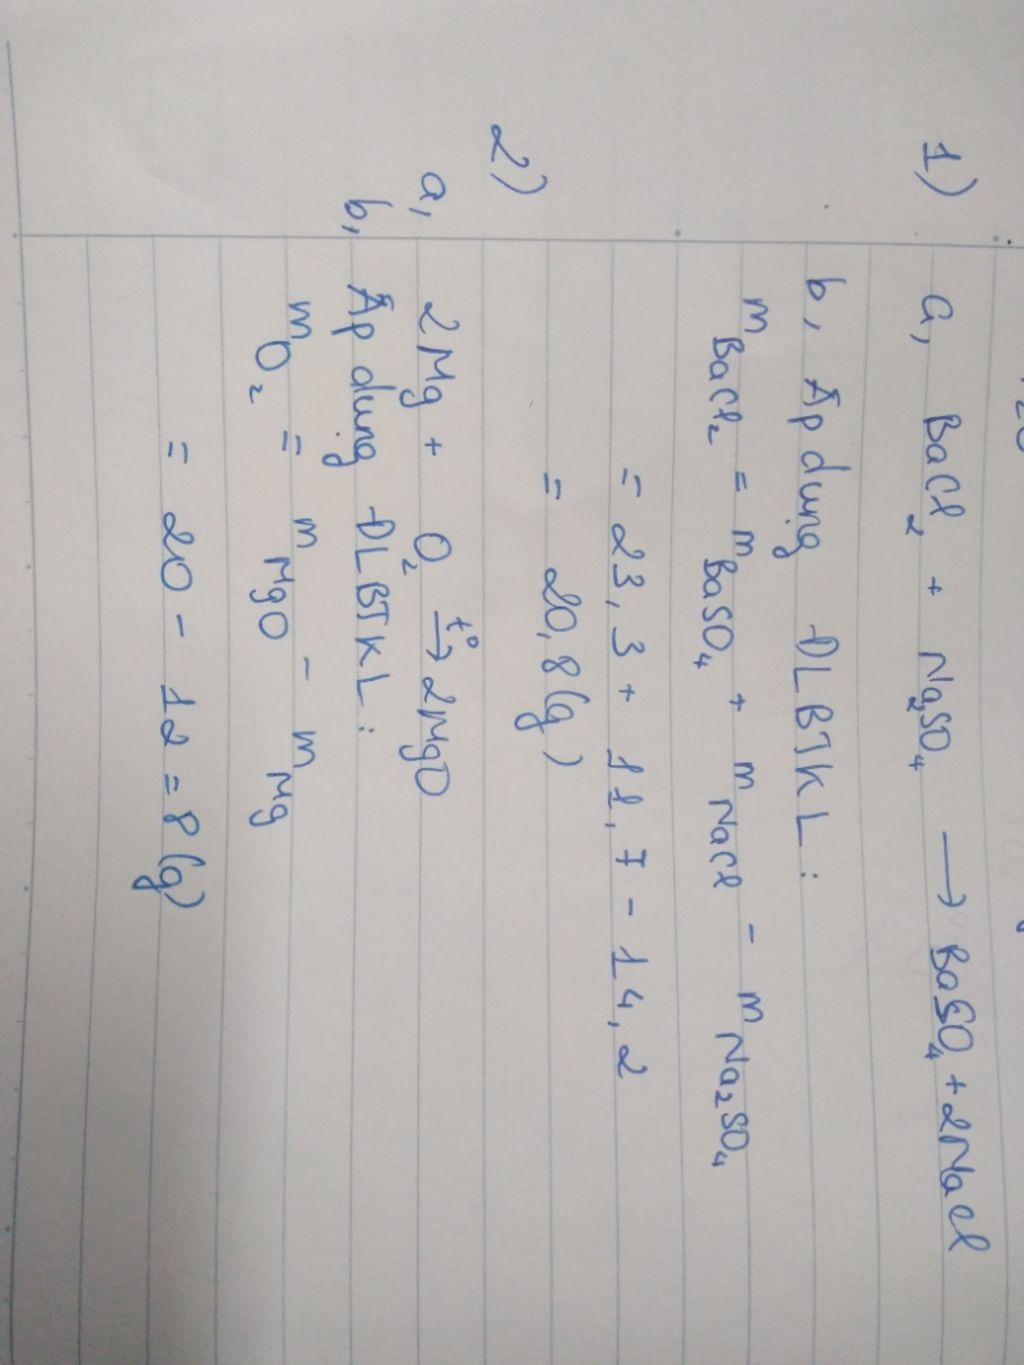 1)
a, BaCl₂ + Na₂SO₄ ⟶ BaSO₄ + 2NaCl
b, Áp dụng ĐLBTKL:
m BaCl₂ = m BaSO₄ + m NaCl - m Na₂SO₄
= 23,3 + 11,7 - 14,2
= 20,8 (g)
2)
a, 2Mg + O₂ t°→ 2MgO
b, Áp dụng ĐLBTKL:
m O₂ = m MgO - m Mg
= 20 - 12 = 8 (g)